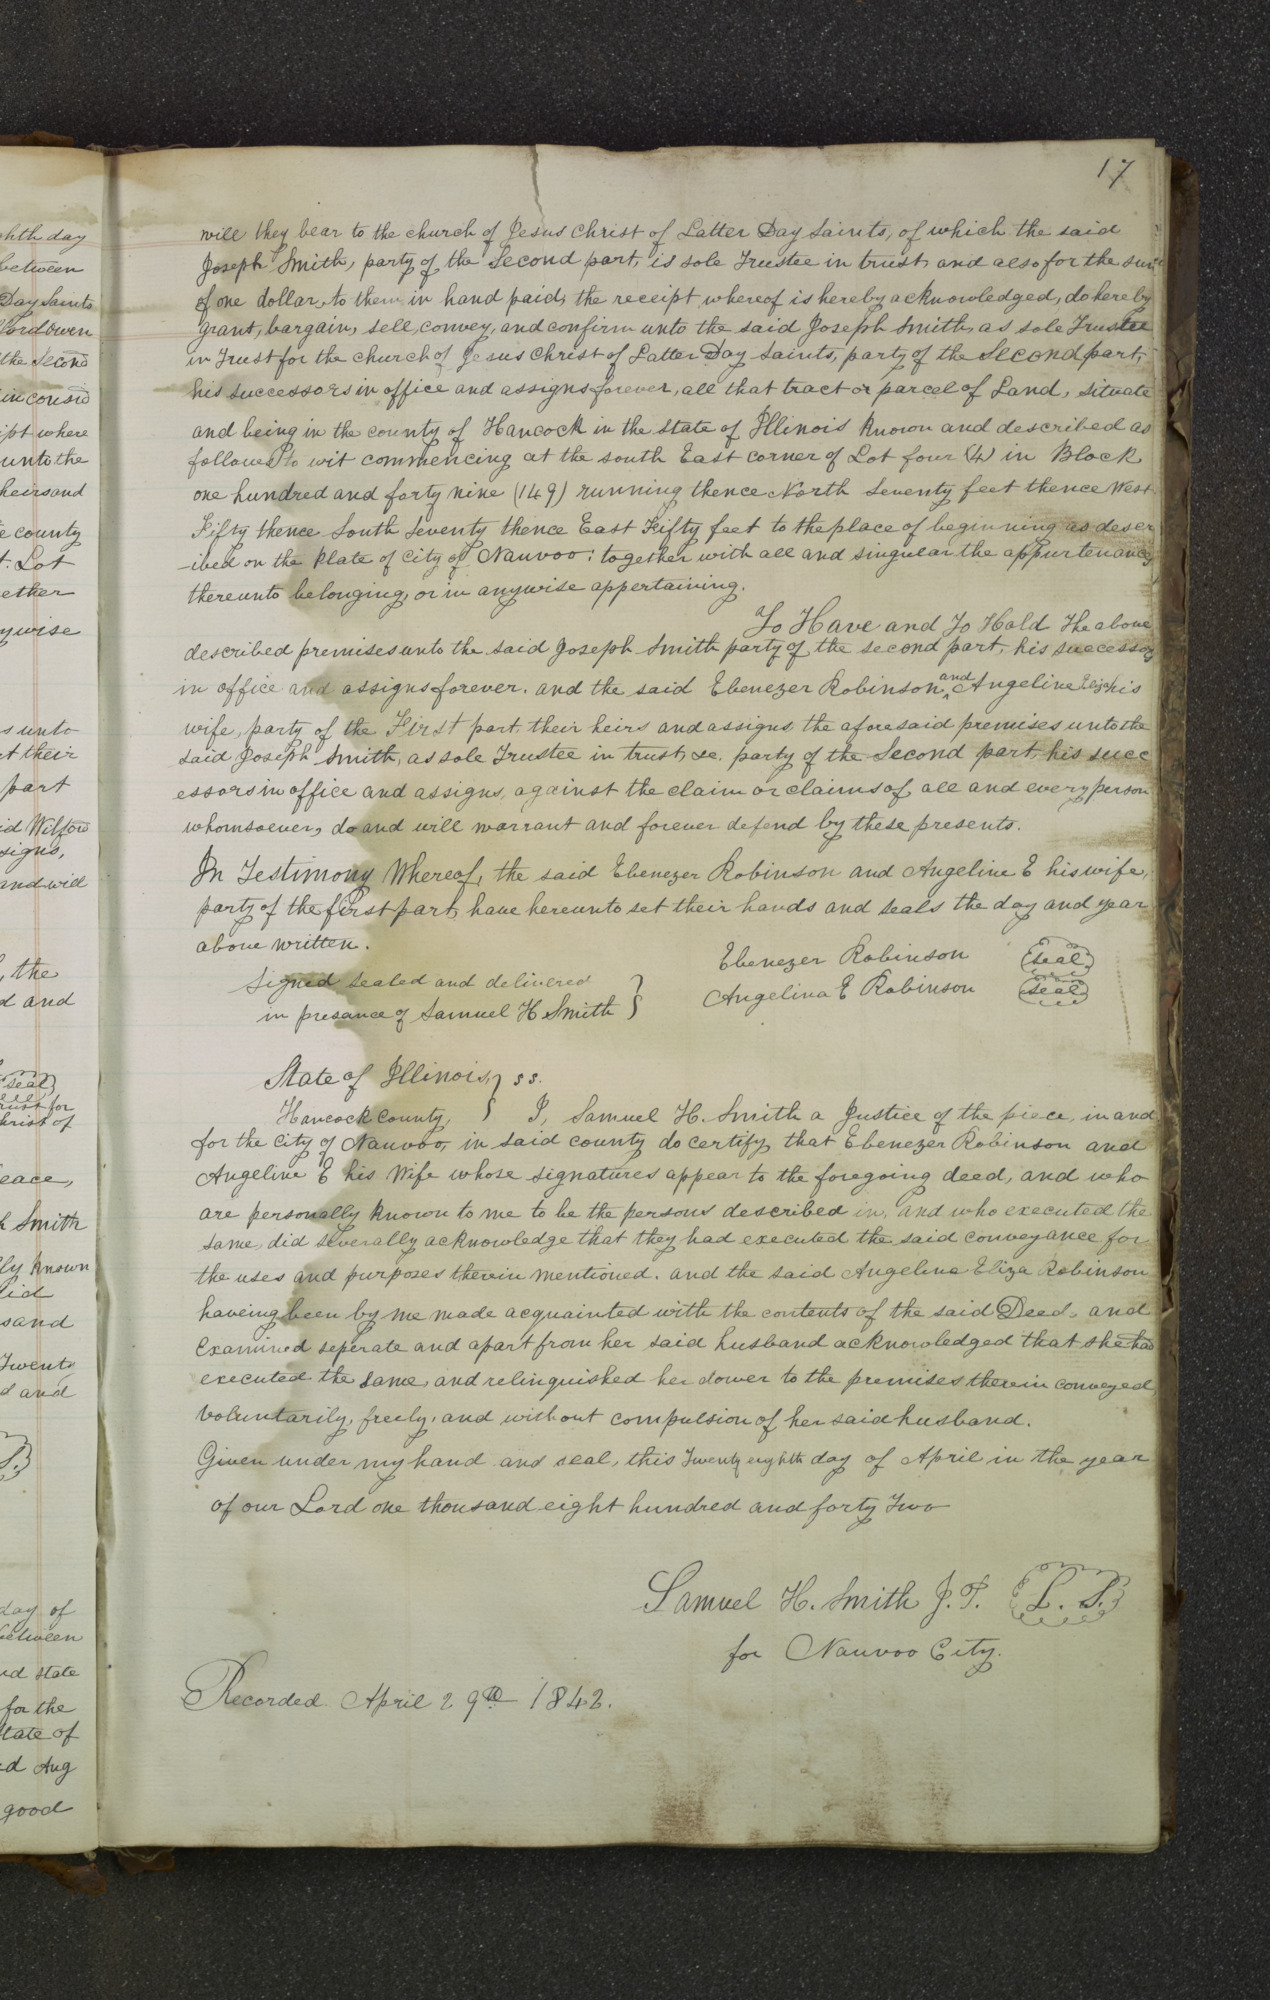 17
will they bear to the church of Jesus Christ of Latter Day Saints, of which the said
Joseph Smith, party of the Second part, is sole Trustee in trust, and also for the sum
of one dollar, to them in hand paid, the receipt whereof is hereby acknowledged, do hereby
grant, bargain, sell, convey, and confirm unto the said Joseph Smith, as sole Trustee
in Trust for the church of Jesus Christ of Latter Day Saints, party of the Second part,
his successors in office and assigns forever, all that tract or parcel of Land, situate
and being in the county of Hancock in the state of Illinois known and described as
follows to wit commencing at the south East corner of Lot four (4) in Block
one hundred and forty nine (149) running thence North Seventy feet thence West
Fifty thence South Seventy thence East Fifty feet to the place of beginning as descr
-ibed on the Plate of City of Nauvoo: together with all and singular the appurtenances
thereunto belonging, or in anywise appertaining.
To Have and To Hold The above
described premises unto the said Joseph Smith party of the second part, his successors
in office and assigns forever. and the said Ebenezer Robinson and Angeline Eliza his
wife, party of the First part, their heirs and assigns, the aforesaid premises unto the
said Joseph Smith, as sole Trustee in trust, &c. party of the Second part, his succ
essors in office and assigns, against the claim or claims of, all and every person
whomsoever, do and will warrant and forever defend by these presents.
In Testimony Whereof, the said Ebenezer Robinson and Angeline E his wife,
party of the first part, have hereunto set their hands and seals the day and year
above written.
Ebenezer Robinson seal
Signed sealed and delivered
Angelina E Robinson seal
in presance of Samuel H Smith
State of Illinois, ss.
Hancock County, I, Samuel H. Smith a Justice of the piece, in and
for the City of Nauvoo, in said county do certify that Ebenezer Robinson and
Angeline E his Wife whose signatures appear to the foregoing deed, and who
are personally known to me to be the persons described in, and who executed the
same, did severally acknowledge that they had executed the said conveyance for
the uses and purposes therein mentioned. and the said Angeline Eliza Robinson
haveing been by me made acquainted with the contents of the said Deed, and
Examined seperate and apart from her said husband acknowledged that she had
executed the same, and relinquished her dower to the premises therein conveyed
voluntarily, freely, and without compulsion of her said husband.
Given under my hand and seal, this Twenty eighth day of April in the year
of our Lord one thousand eight hundred and forty Two
Samuel H. Smith J. P. L. S.
for Nauvoo City.
Recorded April 29th 1842.